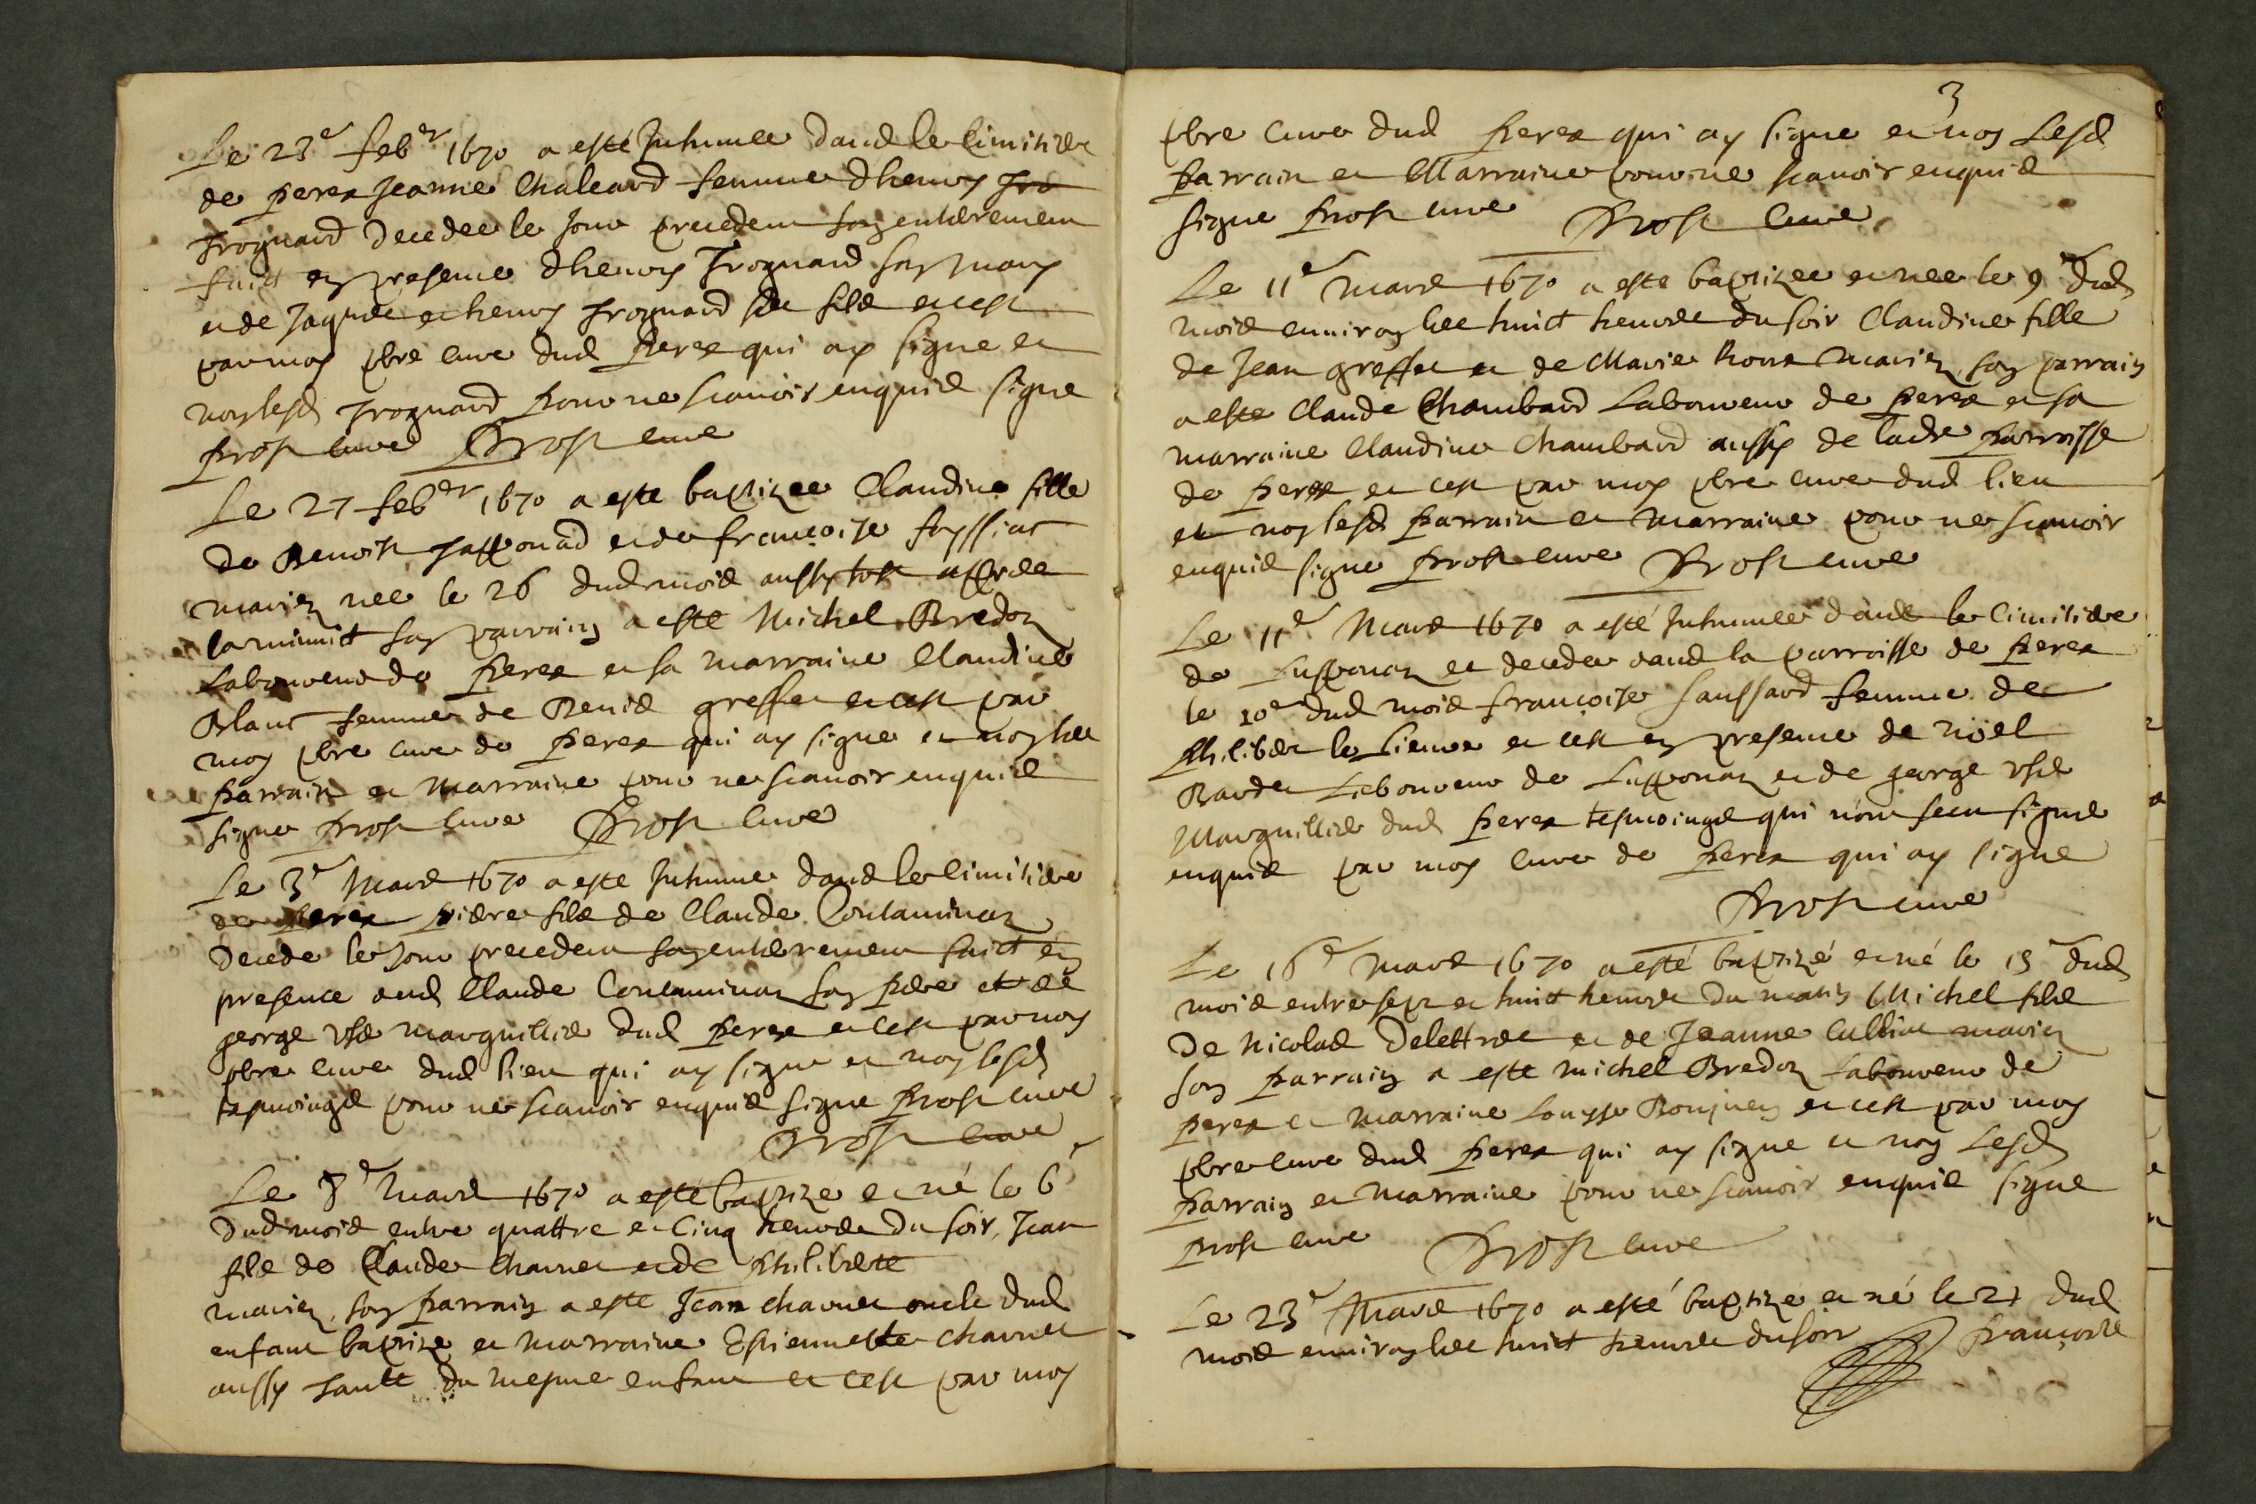 Le 23e feber 1670 a esté Inhumee dans le Cimitiere
de perex Jeanne Chaleard femme dhenry fro
frognard decedee le Jour precedent son enterrement
faict en presence dhenry frognard son mary
et de Jaques et henry frognard ses fils et cest
par moy pbre cure dud perex qui ay signe et
non lesd frognard pour ne scavoir enquis signe
prost cure Prost cure
Le 27 feber 1670 a este baptizee Claudine fille
de Benoist et de francoise
mariez nee le 26 dud mois aussytost apres
la minuict son parrain a este Michel Bredon
Laboureur de perex et sa marraine Claudine
Blanc femme de Benis greffet et cest par
moy pbre cure de perex qui ay signe et non les
parrain et marraine pour ne scavoir enquis
signe prost cure Prost cure
Le 3e Mars 1670 a este Inhume dans le cimitiere
de perex piere fils de Claude Contaminez
decede le Jour precedent son enterrement faict en
presence dud Claude Contaminez son pere et de
george Vse marguillier dud perex et cest par moy
pbre cure dud lieu qui ay signe et non lesd
tesmoings pour ne scavoir enquis signe prost cure
Prost cure
Le 8e Mars 1670 a esté baptize et né le 6e
dud mois entre quattre et Cinq heures du soir, Jean
fils de Claude Charnet et de philiberte
mariez, son parrain a este Jean charnet oncle dud
enfant baptize et marraine Estiennette charnet
aussy tante du mesme enfant et cest par moy
3
pbre cure dud perex qui ay signe et non Lesd
parrain et Marraine pour ne scavoir enquis
signe prost cure Prost cure
Le 11e Mars 1670 a este baptizee et nee le 9e dud
mois environ les huict heures du soir Claudine fille
de Jean greffet et de Marie mariez, son parrain
a este Claude Chambard Laboureur de perex et sa
marraine Claudine Chambard aussy de ladte parroisse
de perex et cest par moy pbre cure dud lieu
et non lesd parrain et marraine pour ne scavoir
enquis signe prost cure Prost cure
Le 11e Mars 1670 a esté Inhumee dans le Cimitiere
de Lupponas et decedee dans la parroisse de perex
le 10e dud mois francoise saussard femme de
philibert et cest en presence de noel
Bardet Laboureur de Lupponas et de george Vse
Marguillier dud perex tesmoings qui nont sceu signe
enquis par moy cure de perex qui ay signe
Prost cure
Le 16e Mars 1670 a esté baptizé et né le 15e dud
mois entre sept et huict heures du matin Michel fils
De Nicolas Delettree et de Jeanne mariez
son parrain a este michel Bredon Laboureur de
perex et marraine Louyse et cest par moy
pbre cure dud perex qui ay signe et non Lesd
parrain et marraine pour ne scavoir enquis signe
prost cure Prost cure
Le 23e Mars 1670 a esté baptize et né le 21 dud
mois environ les huict heures du soir francoise